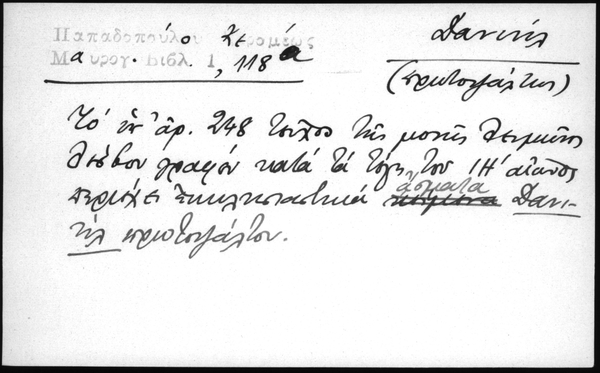 Παπαδοπούλου Κεραμέως
Μαυρογ. Βιβλ. 1, 118α
Δανιήλ
(πρωτοψάλτης)
Τό ὑπ' ἀρ. 248 τεῦχος τῆς μονῆς Λειμῶνος
Λέσβου γραφέν κατά τά τέλη τοῦ ΙΗ' αἰῶνος
περιέχει ἐκκλησιαστικά ᾄσματα Δανι-
ήλ πρωτοψάλτου.